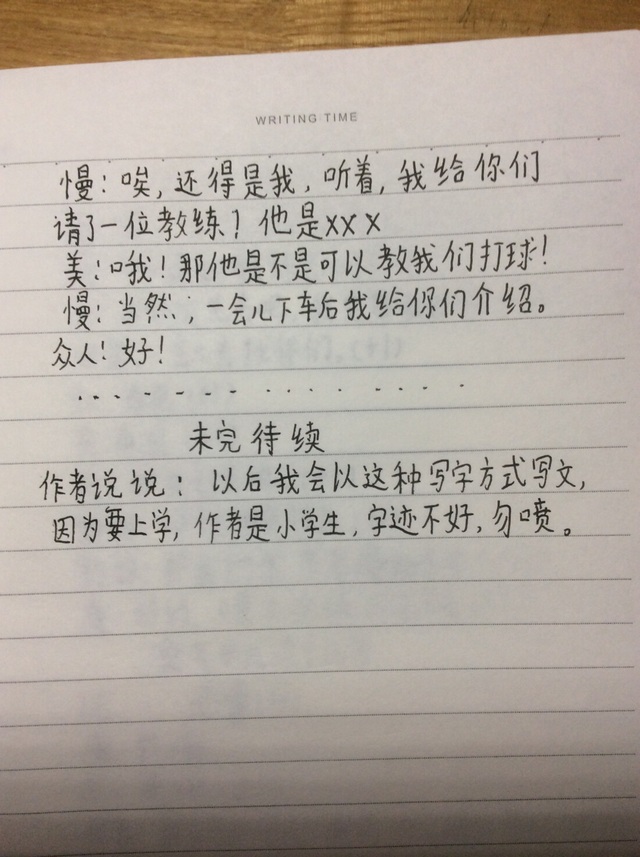 WRITING TIME
慢:唉,还得是我,听着,我给你们
请了一位教练?他是xxx
美:哦!那他是不是可以教我们打球!
慢:当然,一会儿下车后我给你们介绍。
众人!好!
..............
未完待续
作者说说:以后我会以这种写字方式写文,
因为要上学,作者是小学生,字迹不好,勿喷。